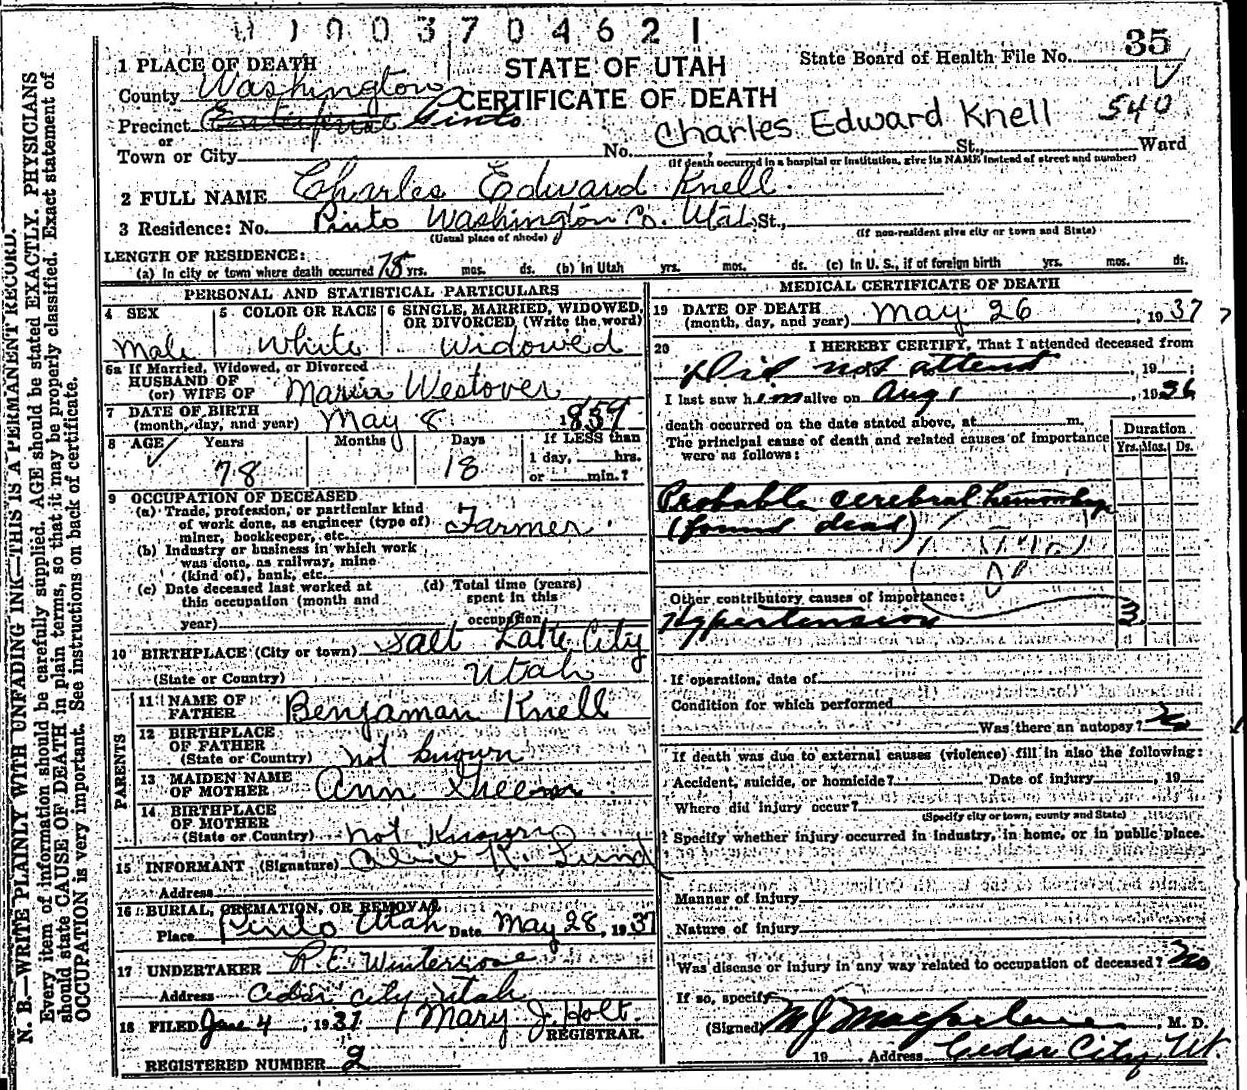 1003704621
35
State Board of Health File No.
1 PLACE OF DEATH
STATE OF UTAH
County Washington
CERTIFICATE OF DEATH
540
Precinct Enterprise Pinto
Charles Edward Knell
or
Town or City No. St., Ward
(If death occurred in a hospital or institution, give its NAME instead of street and number)
2 FULL NAME Charles Edward Knell.
3 Residence: No. Pinto Washington Co. Utah St.,
(Usual place of abode) (If non-resident give city or town and State)
LENGTH OF RESIDENCE:
(a) In city or town where death occurred 75 yrs. mos. ds. (b) In Utah yrs. mos. ds. (c) In U. S., if of foreign birth yrs. mos. ds.
PERSONAL AND STATISTICAL PARTICULARS
4 SEX 5 COLOR OR RACE 6 SINGLE, MARRIED, WIDOWED, OR DIVORCED (Write the word)
Male White Widowed
6a If Married, Widowed, or Divorced
HUSBAND OF
(or) WIFE OF Westover
7 DATE OF BIRTH
(month, day, and year) May 8 1859
8 AGE Years Months Days If LESS than
78 18 1 day, hrs.
or min.?
9 OCCUPATION OF DECEASED
(a) Trade, profession, or particular kind
of work done, as engineer (type of)
miner, bookkeeper, etc. Farmer.
(b) Industry or business in which work
was done, as railway, mine
(kind of), bank, etc.
(c) Date deceased last worked at
this occupation (month and
year)
(d) Total time (years)
spent in this
occupation
10 BIRTHPLACE (City or town) Salt Lake City
(State or Country) Utah
PARENTS
11 NAME OF
FATHER Benjaman Knell
12 BIRTHPLACE
OF FATHER
(State or Country) not known
13 MAIDEN NAME
OF MOTHER Ann
14 BIRTHPLACE
OF MOTHER
(State or Country) not Known
15 INFORMANT (Signature) K. Lund
Address
16 BURIAL, CREMATION, OR REMOVAL
Place Pinto Utah Date May 28, 1937
17 UNDERTAKER R.E.
Address Cedar City Utah
18 FILED June 4, 1937 Mary J. Holt.
REGISTRAR.
REGISTERED NUMBER 2
MEDICAL CERTIFICATE OF DEATH
19 DATE OF DEATH
(month, day, and year) May 26, 1937
20 I HEREBY CERTIFY, That I attended deceased from
Did not attend, 19 ;
I last saw him alive on Aug 1, 1936
death occurred on the date stated above, at m.
Duration
The principal cause of death and related causes of importance
were as follows:
Yrs. Mos. Ds.
Probable cerebral hemorrhage
(found dead)
Other contributory causes of importance:
Hypertension 3
If operation, date of
Condition for which performed
Was there an autopsy? No
If death was due to external causes (violence) fill in also the following:
Accident, suicide, or homicide? Date of injury , 19
Where did injury occur?
(Specify city or town, county and State)
Specify whether injury occurred in industry, in home, or in public place.
Manner of Injury
Nature of Injury
Was disease or injury in any way related to occupation of deceased? No
If so, specify
(Signed) M J Macfarlane, M. D.
19 Address Cedar City, Ut.
N. B.—WRITE PLAINLY WITH UNFADING INK—THIS IS A PERMANENT RECORD.
Every item of information should be carefully supplied. AGE should be stated EXACTLY. PHYSICIANS
should state CAUSE OF DEATH in plain terms, so that it may be properly classified. Exact statement of
OCCUPATION is very important. See instructions on back of certificate.